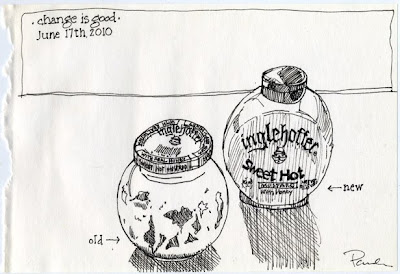 • change is good •
June 17th, 2010
inglehoffer
inglehoffer
Sweet Hot
MUSTARD
With Honey
← new
old →